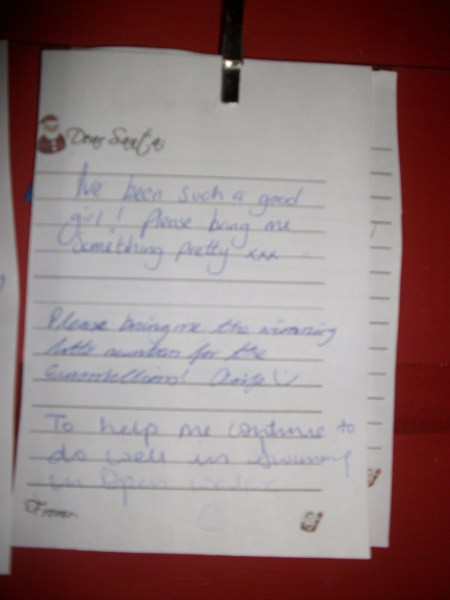 Dear Santa,
I've been such a good
girl! Please bring me
something pretty xxx
Please bring me the winning
lotto numbers for the
Euromillions!
To help me continue to
do well in swimming
in Open water
From